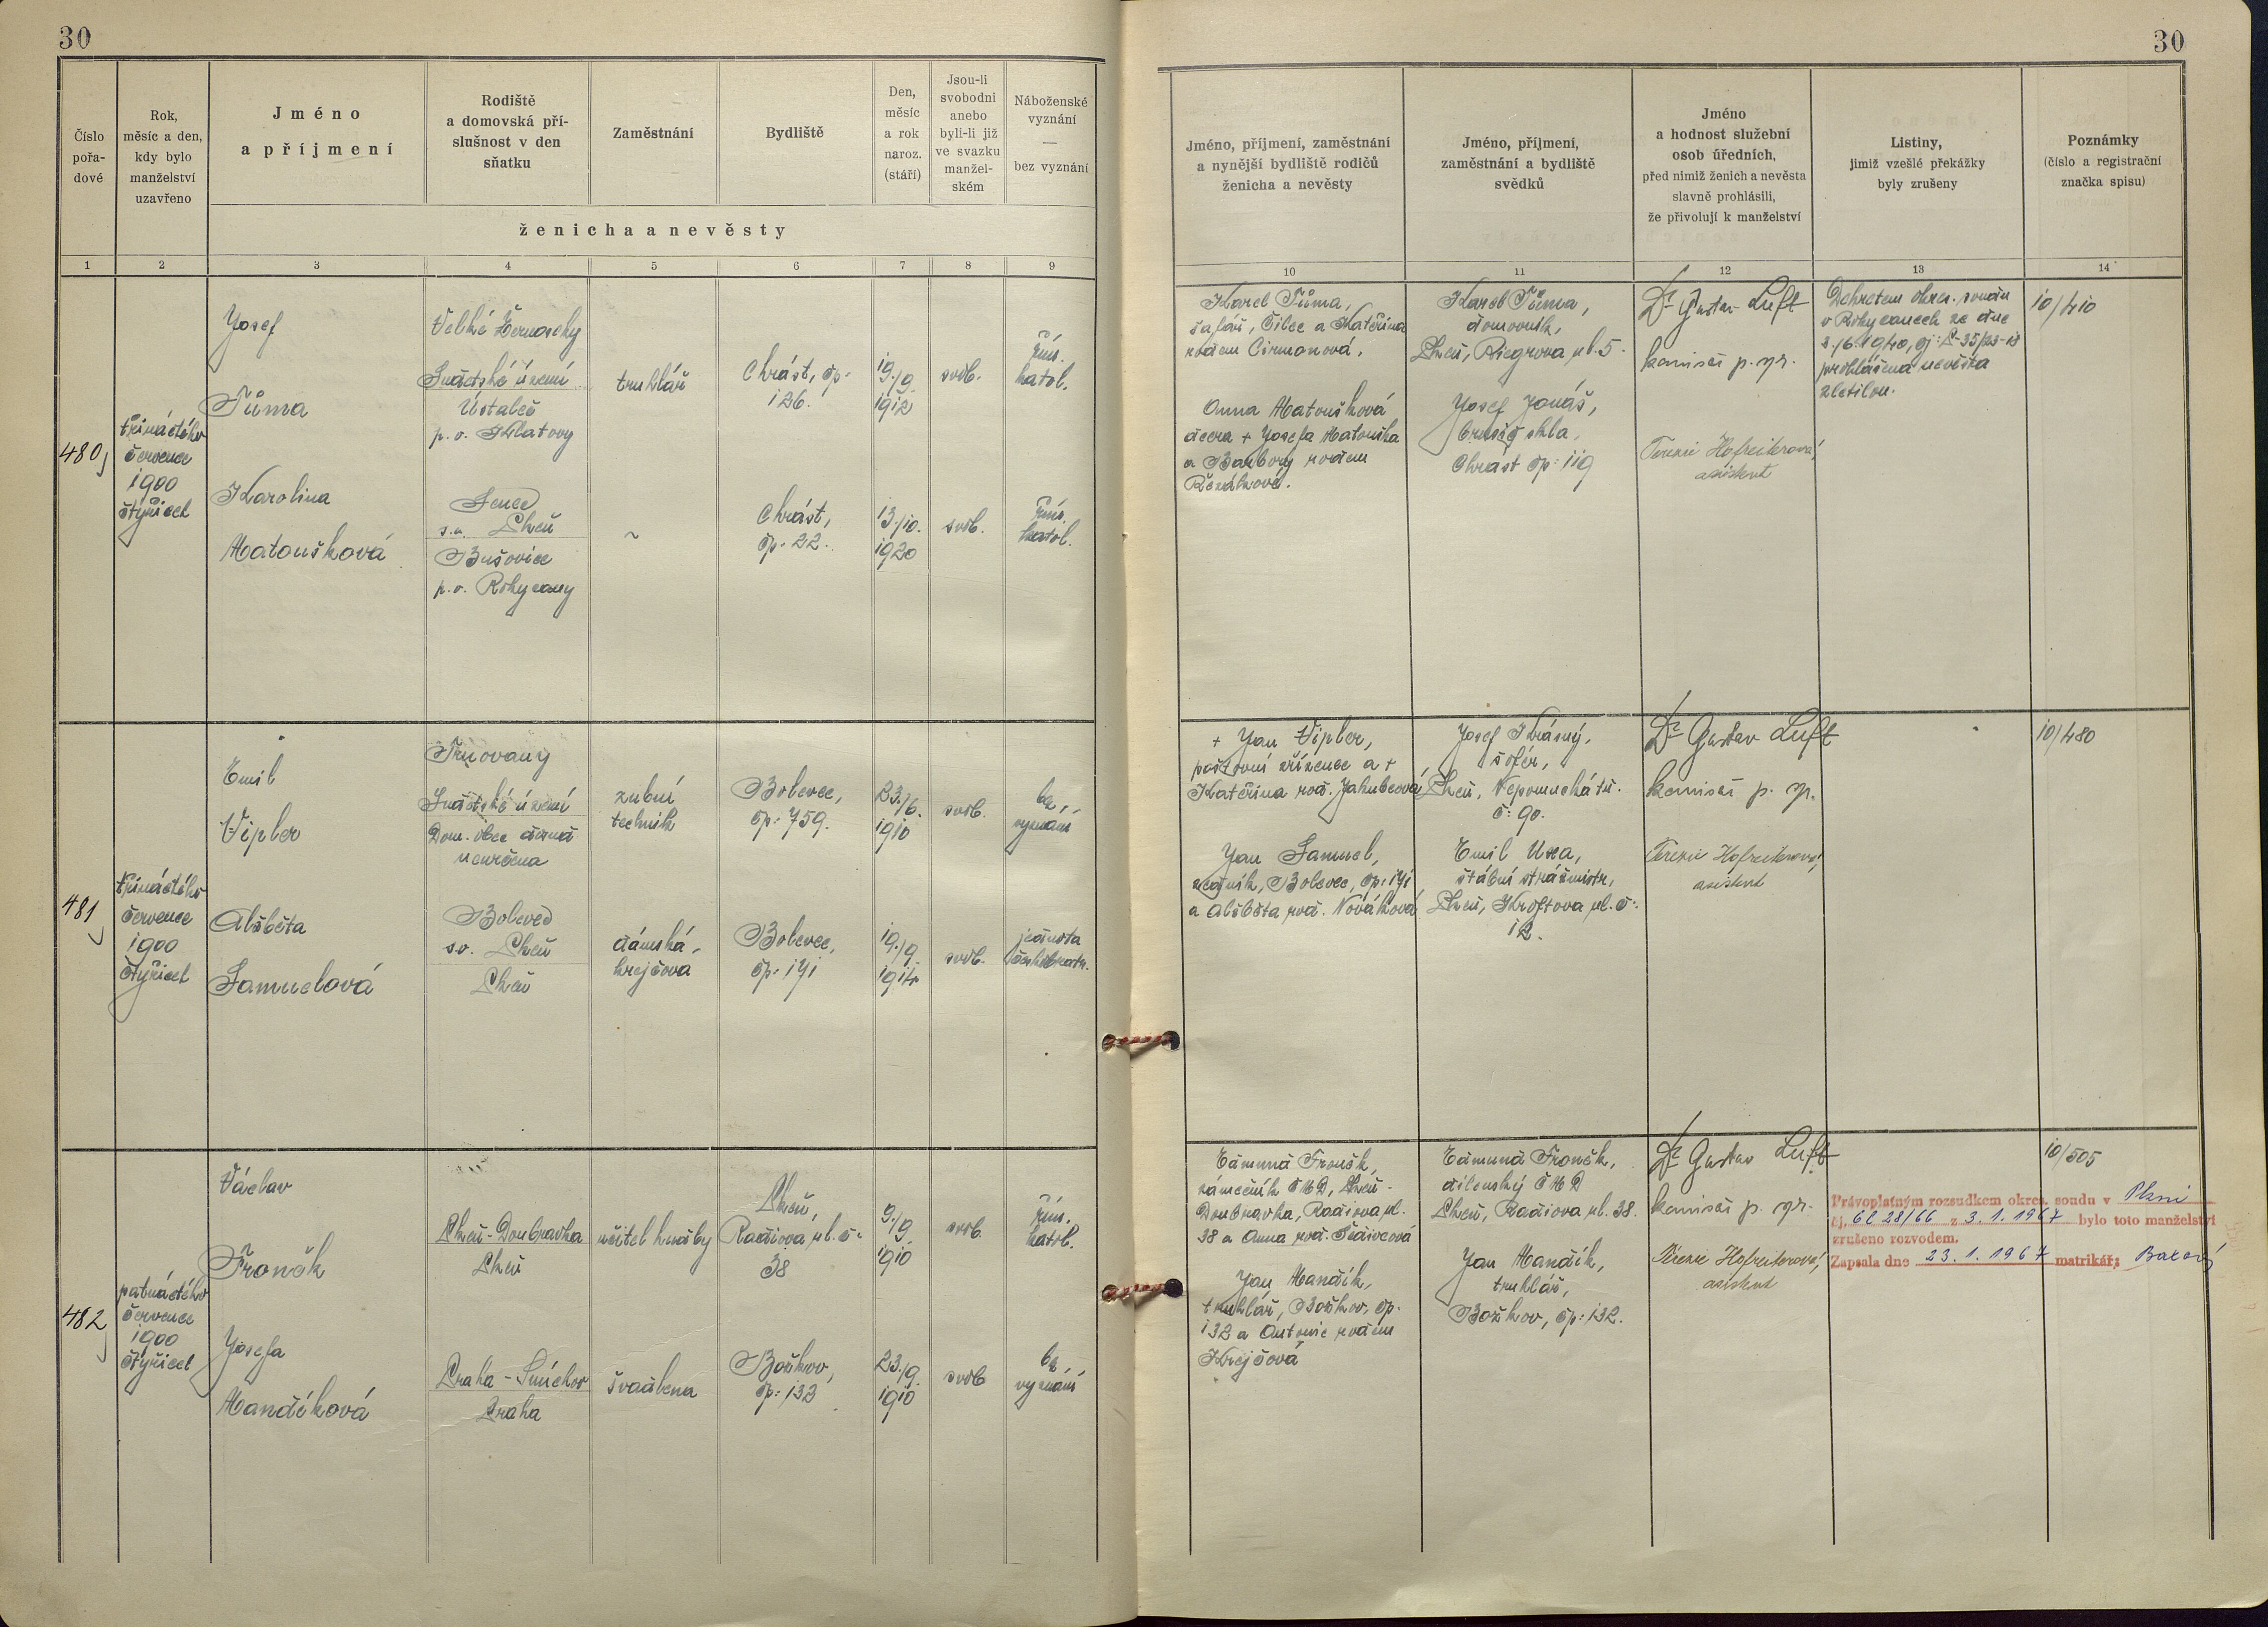 30
30
Číslo
pořa-
dové
Rok,
měsíc a den,
kdy bylo
manželství
uzavřeno
Jméno
a příjmení
Rodiště
a domovská pří-
slušnost v den
sňatku
Zaměstnání
Bydliště
Den,
měsíc
a rok
naroz.
(stáří)
Jsou-li
svobodni
anebo
byli-li již
ve svazku
manžel-
ském
Náboženské
vyznání
—
bez vyznání
ženicha a nevěsty
1 2 3 4 5 6 7 8 9
Jméno, příjmení, zaměstnání
a nynější bydliště rodičů
ženicha a nevěsty
Jméno, příjmení,
zaměstnání a bydliště
svědků
Jméno
a hodnost služební
osob úředních,
před nimiž ženich a nevěsta
slavně prohlásili,
že přivolují k manželství
Listiny,
jimiž vzešlé překážky
byly zrušeny
Poznámky
(číslo a registrační
značka spisu)
10 11 12 13 14
480
třináctého
července
1900
čtyřicet
Josef
Tůma
Velké Žernoseky
Sudetské území
Ústaleč
p. o. Klatovy
truhlář
Chrást, čp.
126.
19./9.
1912
svob.
řím.
katol.
Karolina
Matoušková
Senec
s.o. Plzeň
Bušovice
p. o. Rokycany
~
Chrást,
čp. 22.
13./10.
1920
svob.
řím.
katol.
Karel Tůma,
šafář, Čilec a Kateřina
rodem Cirmonová,
Anna Matoušková
dcera + Josefa Matouška
a Barbory rodem
Řezáčkové.
Karel Tůma,
domovník,
Plzeň, Riegrova ul. 5.
Josef Jonáš,
brusič skla,
Chrást čp: 119
Dr Gustav Luft
komisař p. spr.
Terezie Hofreiterová,
asistent
Dekretem okres. soudu
v Rokycanech ze dne
3./6.1940, čj: P-35/23-13
prohlášena nevěsta
zletilou.
10/410
481
třináctého
července
1900
čtyřicet
Emil
Vipler
Trnovany
Sudetské území
Dom. obec dosud
neurčena
zubní
technik
Bolevec,
čp: 759.
23./6.
1910
svob.
bez
vyznání
Alžběta
Samuelová
Bolevec
so. Plzeň
Plzeň
dámská
krejčová
Bolevec,
čp: 171
19./9.
1914
svob.
jednota
českobratr.
+ Jan Vipler,
poštovní zřízenec a +
Kateřina roz. Jakubcová
Jan Samuel,
zedník, Bolevec, čp: 171
a Alžběta roz. Nováková
Josef Krásný,
šofér,
Plzeň, Nepomucká tř.
č: 90.
Emil Uxa,
štábní strážmistr,
Plzeň, Kroftova ul. č:
12.
Dr Gustav Luft
komisař p. sp.
Terezie Hofreiterová,
asistent
10/480
482
patnáctého
července
1900
čtyřicet
Václav
Froněk
Plzeň-Doubravka
Plzeň
učitel hudby
Plzeň,
Radčiova ul. č:
38
9./9.
1910
svob.
řím.
katol.
Josefa
Mandíková
Praha-Smíchov
Praha
švadlena
Božkov,
čp: 132
23./9.
1910
svob
bez
vyznání
Edmund Froněk,
zámečník ČMD, Plzeň-
Doubravka, Radčiova ul.
38 a Anna roz.
Jan Mandík,
truhlář, Božkov, čp.
132 a Antonie rodem
Krejčová
Edmund Froněk,
dílenský ČMD
Plzeň, Radčiova ul. 38.
Jan Mandík,
truhlář,
Božkov, čp: 132.
Dr Gustav Luft
komisař p. spr.
Terezie Hofreiterová,
asistent
10/505
Právoplatným rozsudkem okres. soudu v Plzni
čj. 6C 28/66 z 3. 1. 1967 bylo toto manželství
zrušeno rozvodem.
Zapsala dne 23. 1. 1967 matrikář: